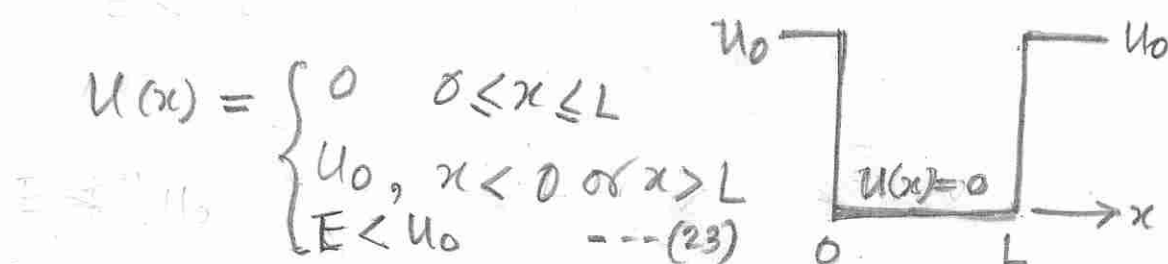 U(x) = { 0 0 ≤ x ≤ L
U0, x < 0 or x > L
E < U0 ---(23)
U0 U0
U(x)=0
x
0 L